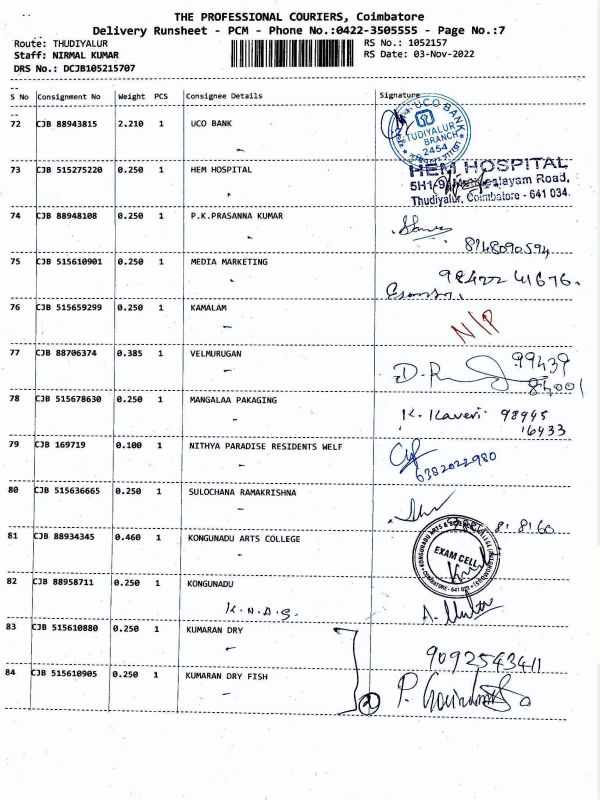 THE PROFESSIONAL COURIERS, Coimbatore
Delivery Runsheet - PCM - Phone No.:0422-3505555 - Page No.:7
Route: THUDIYALUR RS No.: 1052157
Staff: NIRMAL KUMAR RS Date: 03-Nov-2022
DRS No.: DCJB105215707
S No Consignment No Weight PCS Consignee Details Signature
72 CJB 88943815 2.210 1 UCO BANK
UCO BANK
TUDIYALUR
BRANCH
2454
73 CJB 515275220 0.250 1 HEM HOSPITAL
HEM HOSPITAL
Road,
Thudiyalur, Coimbatore - 641 034.
74 CJB 88948108 0.250 1 P.K.PRASANNA KUMAR
8148090594
75 CJB 515610901 0.250 1 MEDIA MARKETING
98422 41676.
76 CJB 515659299 0.250 1 KAMALAM
N/P
77 CJB 88706374 0.385 1 VELMURUGAN
99439
84001
78 CJB 515678630 0.250 1 MANGALAA PAKAGING
K. Kaveri 98945
16433
79 CJB 169719 0.100 1 NITHYA PARADISE RESIDENTS WELF
6382022980
80 CJB 515636665 0.250 1 SULOCHANA RAMAKRISHNA
81 CJB 88934345 0.460 1 KONGUNADU ARTS COLLEGE
EXAM CELL
82 CJB 88958711 0.250 1 KONGUNADU
K.N.A.S.
83 CJB 515610880 0.250 1 KUMARAN DRY
9092543411
84 CJB 515610905 0.250 1 KUMARAN DRY FISH
2